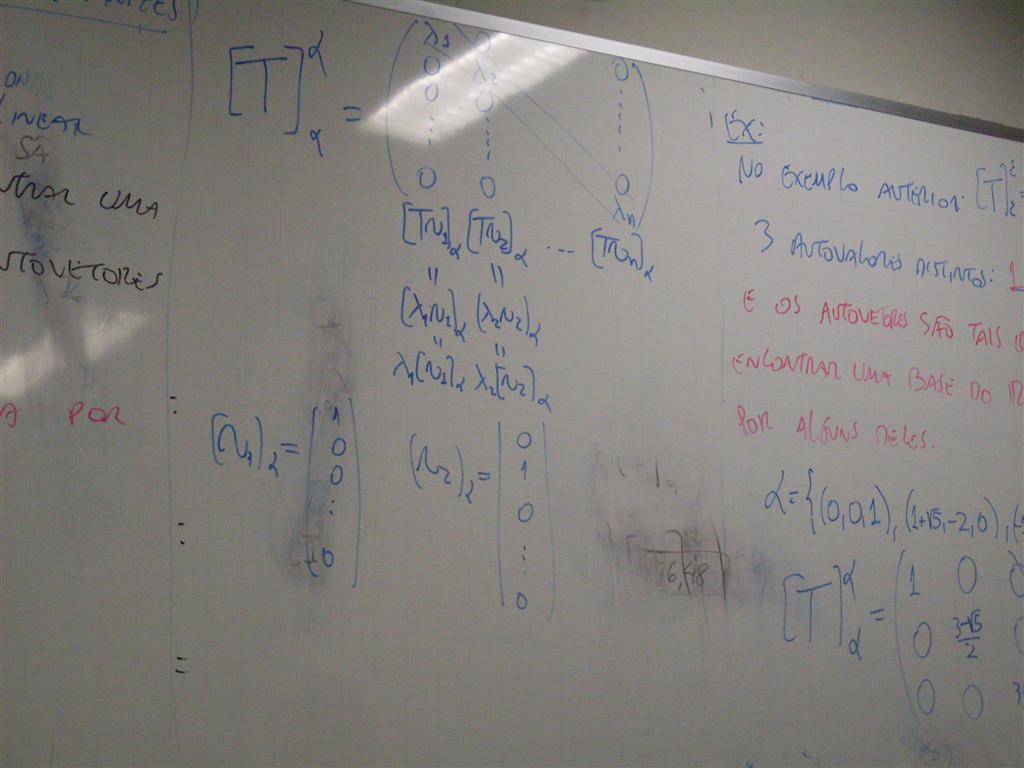 LINEAR
UMA
POR
[T]^α_α =
λ1 0
0 λ2 0
0 0
0 0 0
λn
[Tv1]_α [Tv2]_α ... [Tvn]_α
" "
[λ1v1]_α [λ2v2]_α
" "
λ1[v1]_α λ2[v2]_α
[v1]_α = 1 0 0 : 0
[v2]_α = 0 1 0 : 0
Ex:
NO EXEMPLO ANTERIOR: [T]
3 AUTOVALORES DISTINTOS: 1
E OS AUTOVETORES SÃO TAIS
ENCONTRAR UMA BASE DO
POR ALGUNS DELES.
α = {(0,0,1), (1+√5,-2,0), (
[T]^α_α =
1 0
0 3-√5/2
0 0